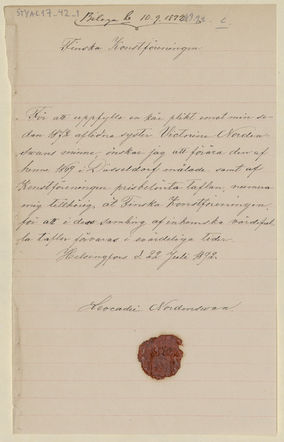 STYAC17-42-1
Bilaga 10.9.1892
Finska Konstföreningen
För att uppfylla en kär plikt emot min se-
dan 1873 aflidna syster Victorine Norden-
swans minne, önskar jag att förära den af
henne 1869 i Düsseldorf målade samt af
Konstföreningen prisbelönta taflan, numera
mig tillhörig, åt Finska Konstföreningen
för att i dess samling af inhemska värdeful-
la taflor förvaras i evärdeliga tider.
Helsingfors d. 22 Juli 1892.
Leocadie Nordenswan